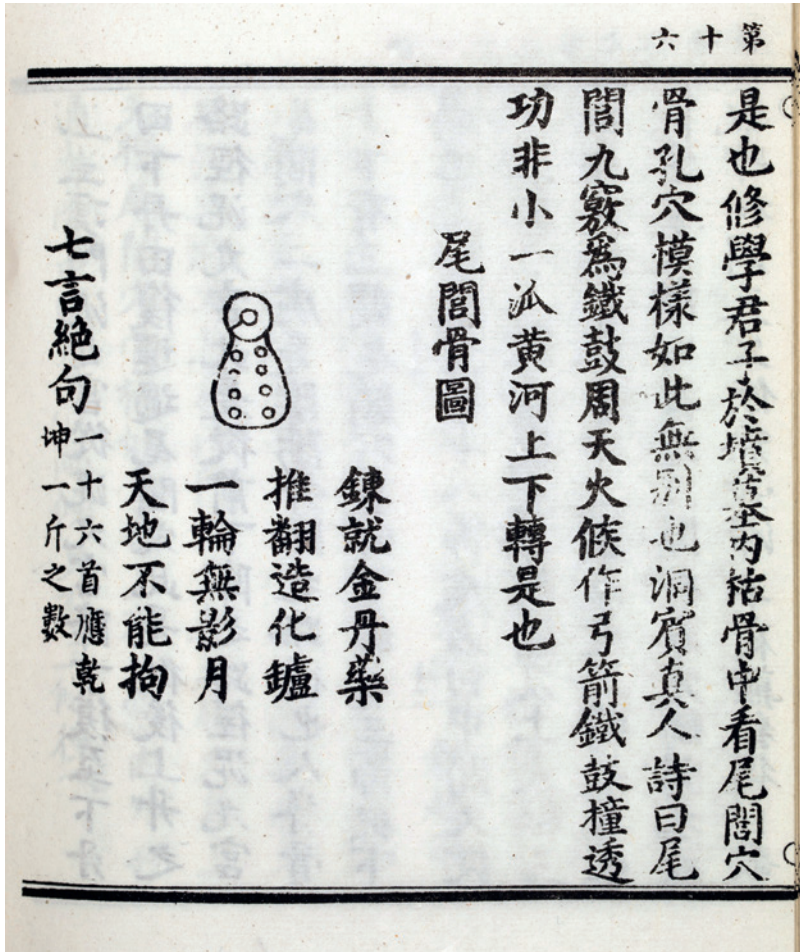 第十六
是也修學君子於墳墓內枯骨中看尾閭穴
骨孔穴模樣如此無別也洞賓真人詩曰尾
閭九竅爲鐵鼓周天火候作弓箭鐵鼓撞透
功非小一派黄河上下轉是也
尾閭骨圖
鍊就金丹藥
推翻造化鑪
一輪無影月
天地不能拘
七言絶句一十六首應乾
坤一斤之數